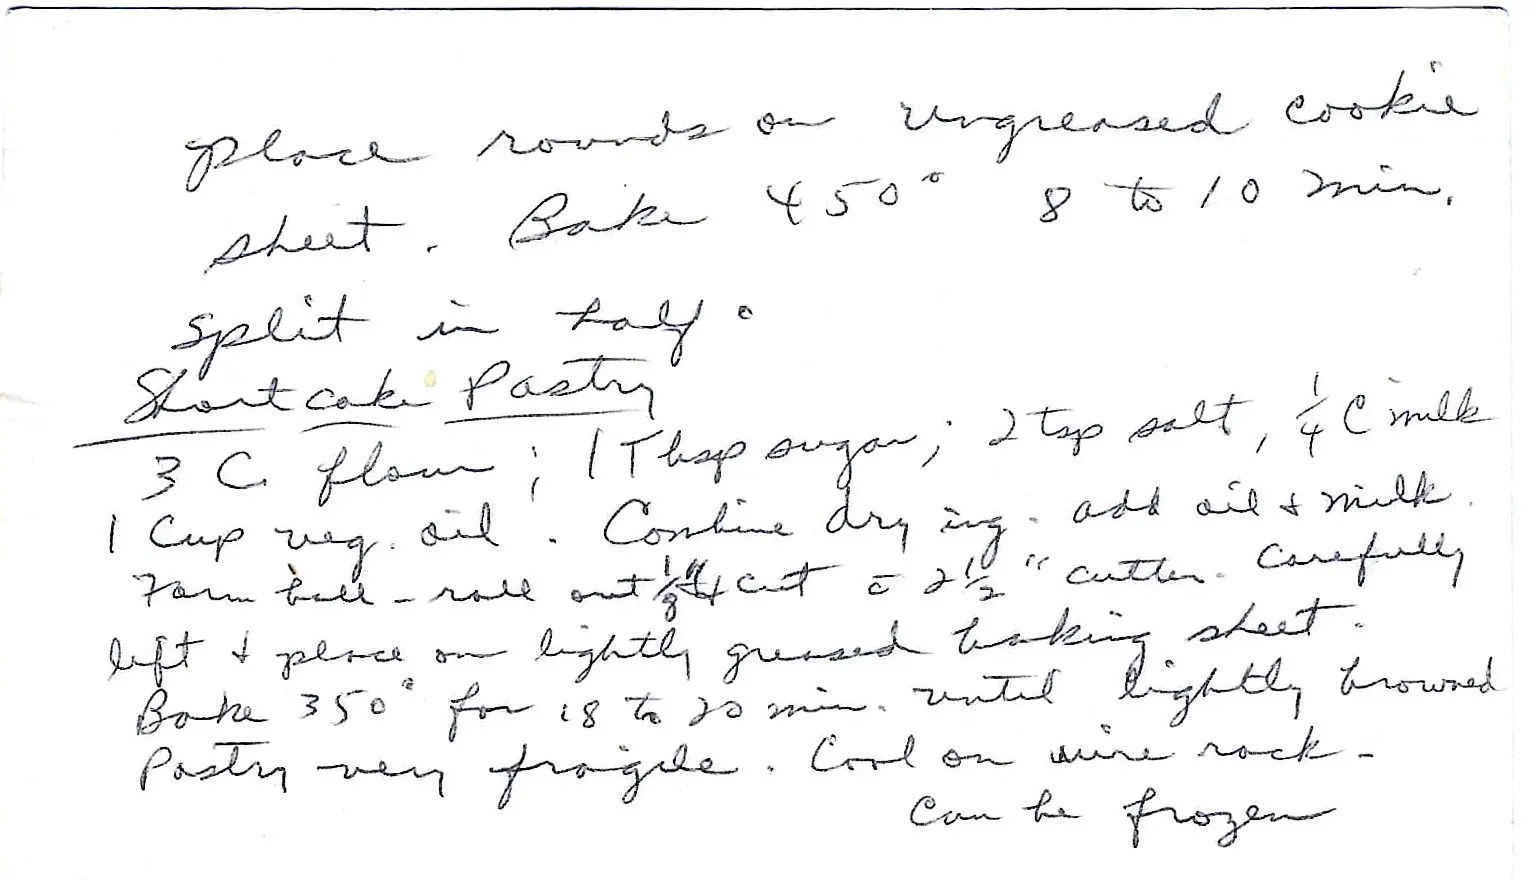 place rounds on ungreased cookie
sheet. Bake 450° 8 to 10 min.
split in half.
Shortcake Pastry
3 C. flour; 1 Tbsp sugar; 2 tsp salt, 1/4 C milk
1 Cup veg. oil. Combine dry ing. add oil + milk.
Form ball - roll out 1/8" + cut c̄ 2 1/2" cutter. Carefully
lift + place on lightly greased baking sheet.
Bake 350° for 18 to 20 min. until lightly browned
Pastry very fragile. Cool on wire rack -
Can be frozen